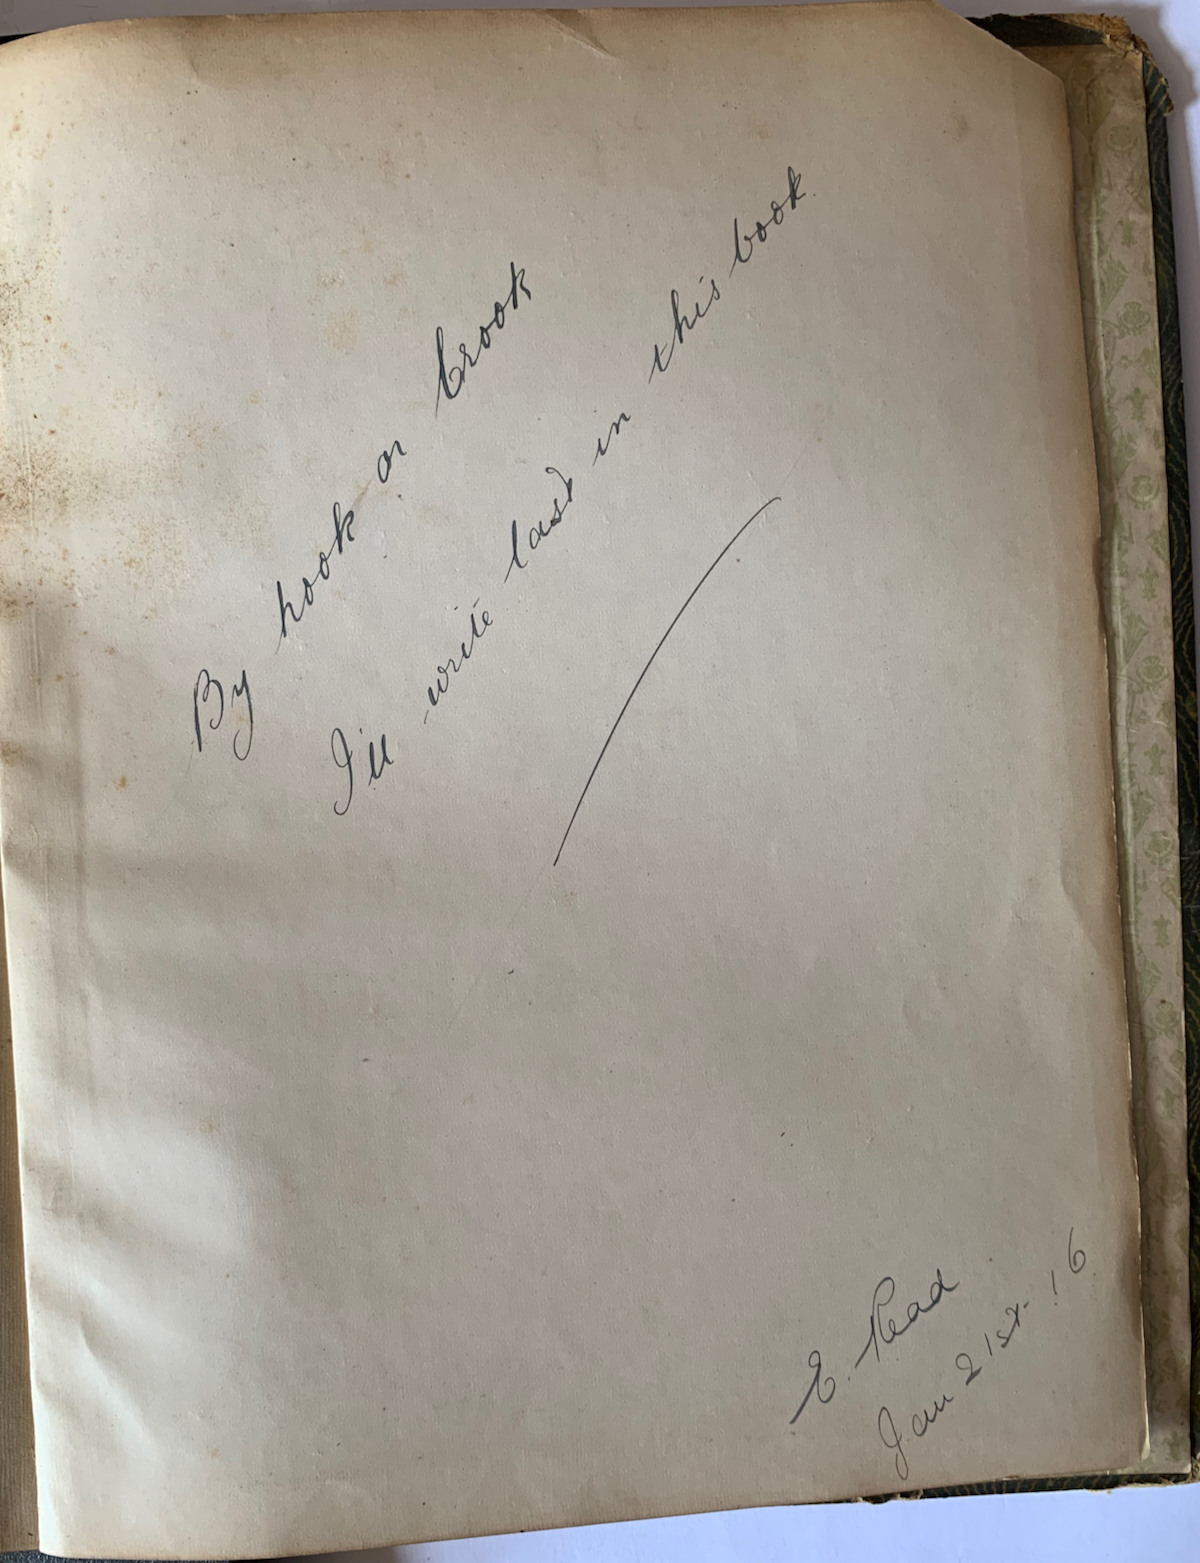 By hook or Crook
I'll write last in this book.
E. Read
Jan 21st. 16